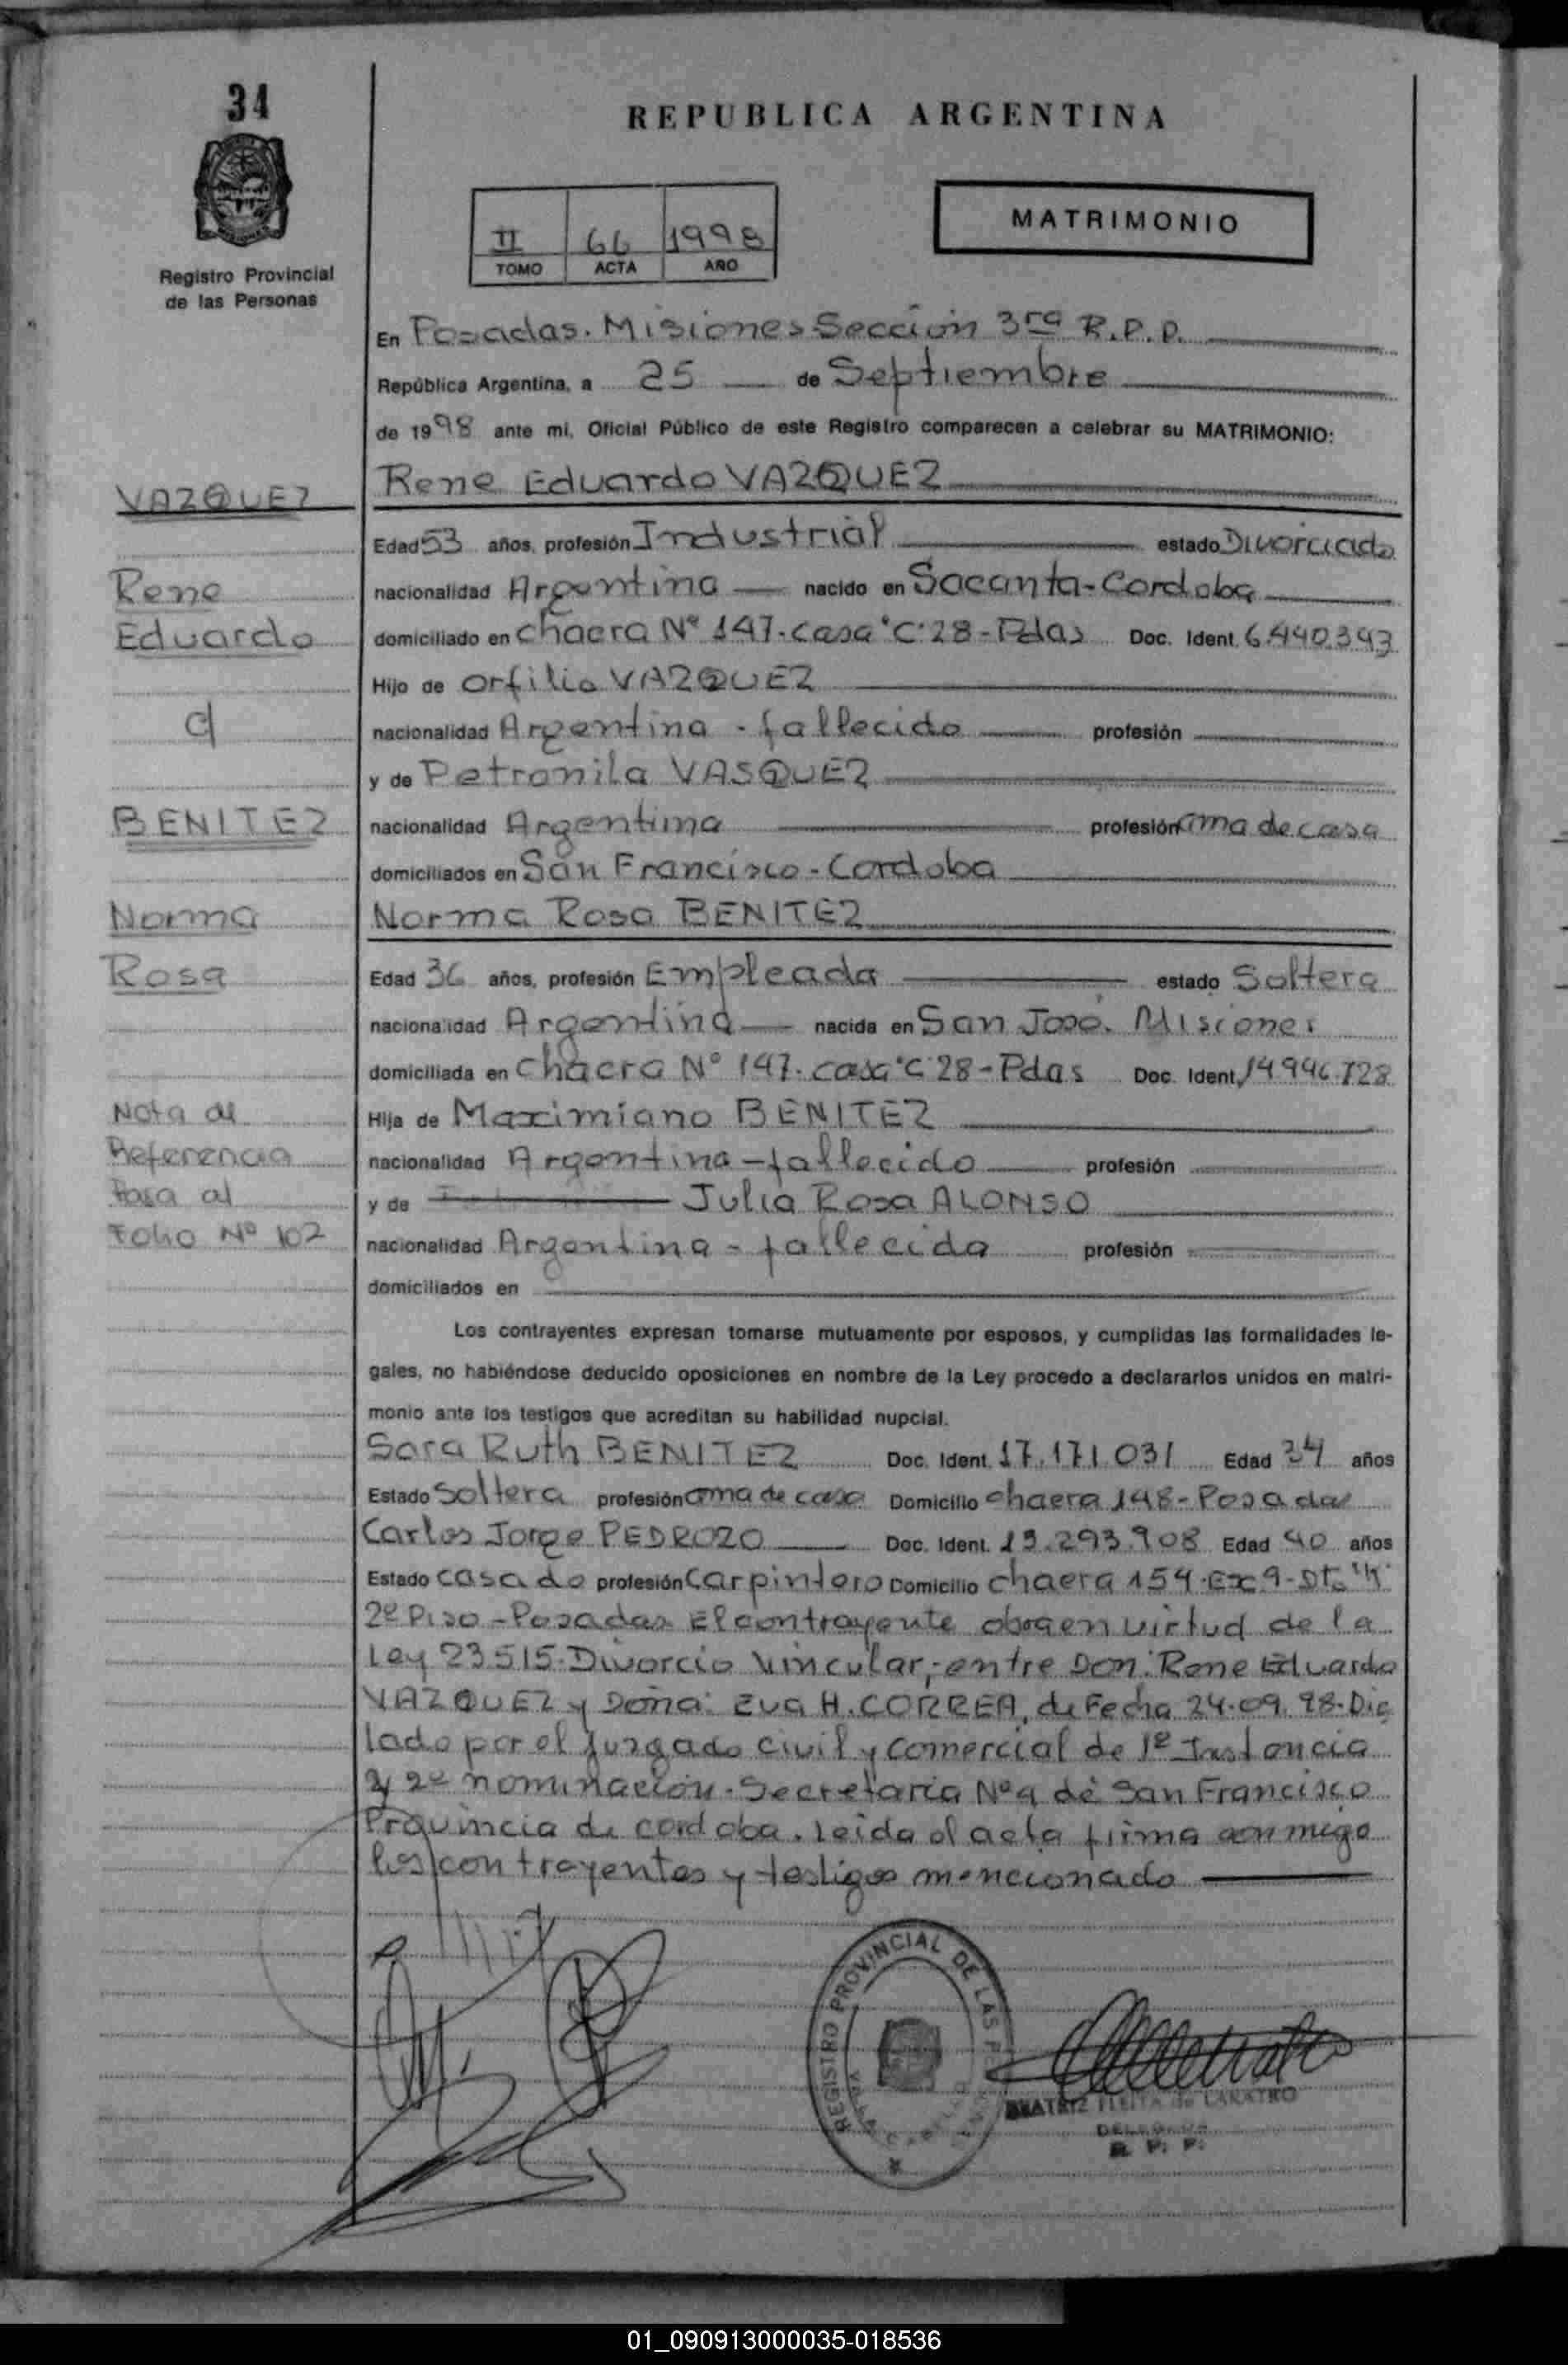 34
REPUBLICA ARGENTINA
MATRIMONIO
II 66 1998
TOMO ACTA AÑO
Registro Provincial
de las Personas
En Posadas. Misiones Sección 3ra R.P.P.
República Argentina, a 25 de Septiembre
de 1998 ante mi, Oficial Público de este Registro comparecen a celebrar su MATRIMONIO:
VAZQUEZ
Rene
Eduardo
c/
BENITEZ
Norma
Rosa
Nota de
Referencia
Pasa al
Folio Nº 102
Rene Eduardo VAZQUEZ
Edad 53 años, profesión Industrial estado Divorciado
nacionalidad Argentina nacido en Sacanta-Cordoba
domiciliado en chacra Nº 147-casa "C" 28-Pdas Doc. Ident. 6.440.393
Hijo de Orfilio VAZQUEZ
nacionalidad Argentina - fallecido profesión
y de Petronila VASQUEZ
nacionalidad Argentina profesión ama de casa
domiciliados en San Francisco - Cordoba
Norma Rosa BENITEZ
Edad 36 años, profesión Empleada estado Soltera
nacionalidad Argentina nacida en San José. Misiones
domiciliada en chacra Nº 147. casa "C" 28-Pdas Doc. Ident. 14.946.728
Hija de Maximiano BENITEZ
nacionalidad Argentina - fallecido profesión
y de Julia Rosa ALONSO
nacionalidad Argentina - fallecida profesión
domiciliados en
Los contrayentes expresan tomarse mutuamente por esposos, y cumplidas las formalidades le-
gales, no habiéndose deducido oposiciones en nombre de la Ley procedo a declararlos unidos en matri-
monio ante los testigos que acreditan su habilidad nupcial.
Sara Ruth BENITEZ Doc. Ident. 17.171.031 Edad 34 años
Estado Soltera profesión ama de casa Domicilio chacra 148-Posadas
Carlos Jorge PEDROZO Doc. Ident. 13.293.908 Edad 40 años
Estado casado profesión Carpintero Domicilio chacra 154-Ex 9-Dto
2º Piso - Posadas El contrayente en virtud de la
Ley 23515-Divorcio Vincular, entre Don: Rene Eduardo
VAZQUEZ y Doña: Eva H. CORREA, de Fecha 24.09.98. Dic
tado por el Juzgado civil y Comercial de 1º Instancia
y 2º nominación. Secretaria Nº 4 de San Francisco
Provincia de cordoba. Leida el acta firma conmigo
los contrayentes y testigos mencionado
REGISTRO PROVINCIAL DE LAS
BEATRIZ FLEITA de LANATRO
DELEGADA
R. P. P.
01_090913000035-018536